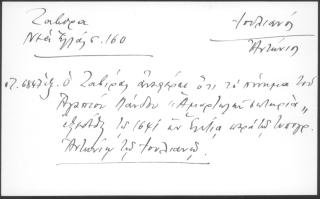 Ζαβίρα
Νέα Ἑλλάς σ. 160
Ἰουλιανός
Ἀντώνιος
ὁ Ζαβίρας ἀναφέρει ὅτι τὸ ποίημα τοῦ
Λάνδου "Ἁμαρτωλῶν σωτηρία"
ἐξεδόθη τῷ 1641 ἐν Ἑνετίᾳ παρὰ τῷ τυπογρ.
Ἀντωνίῳ τῷ Ἰουλιανῷ.